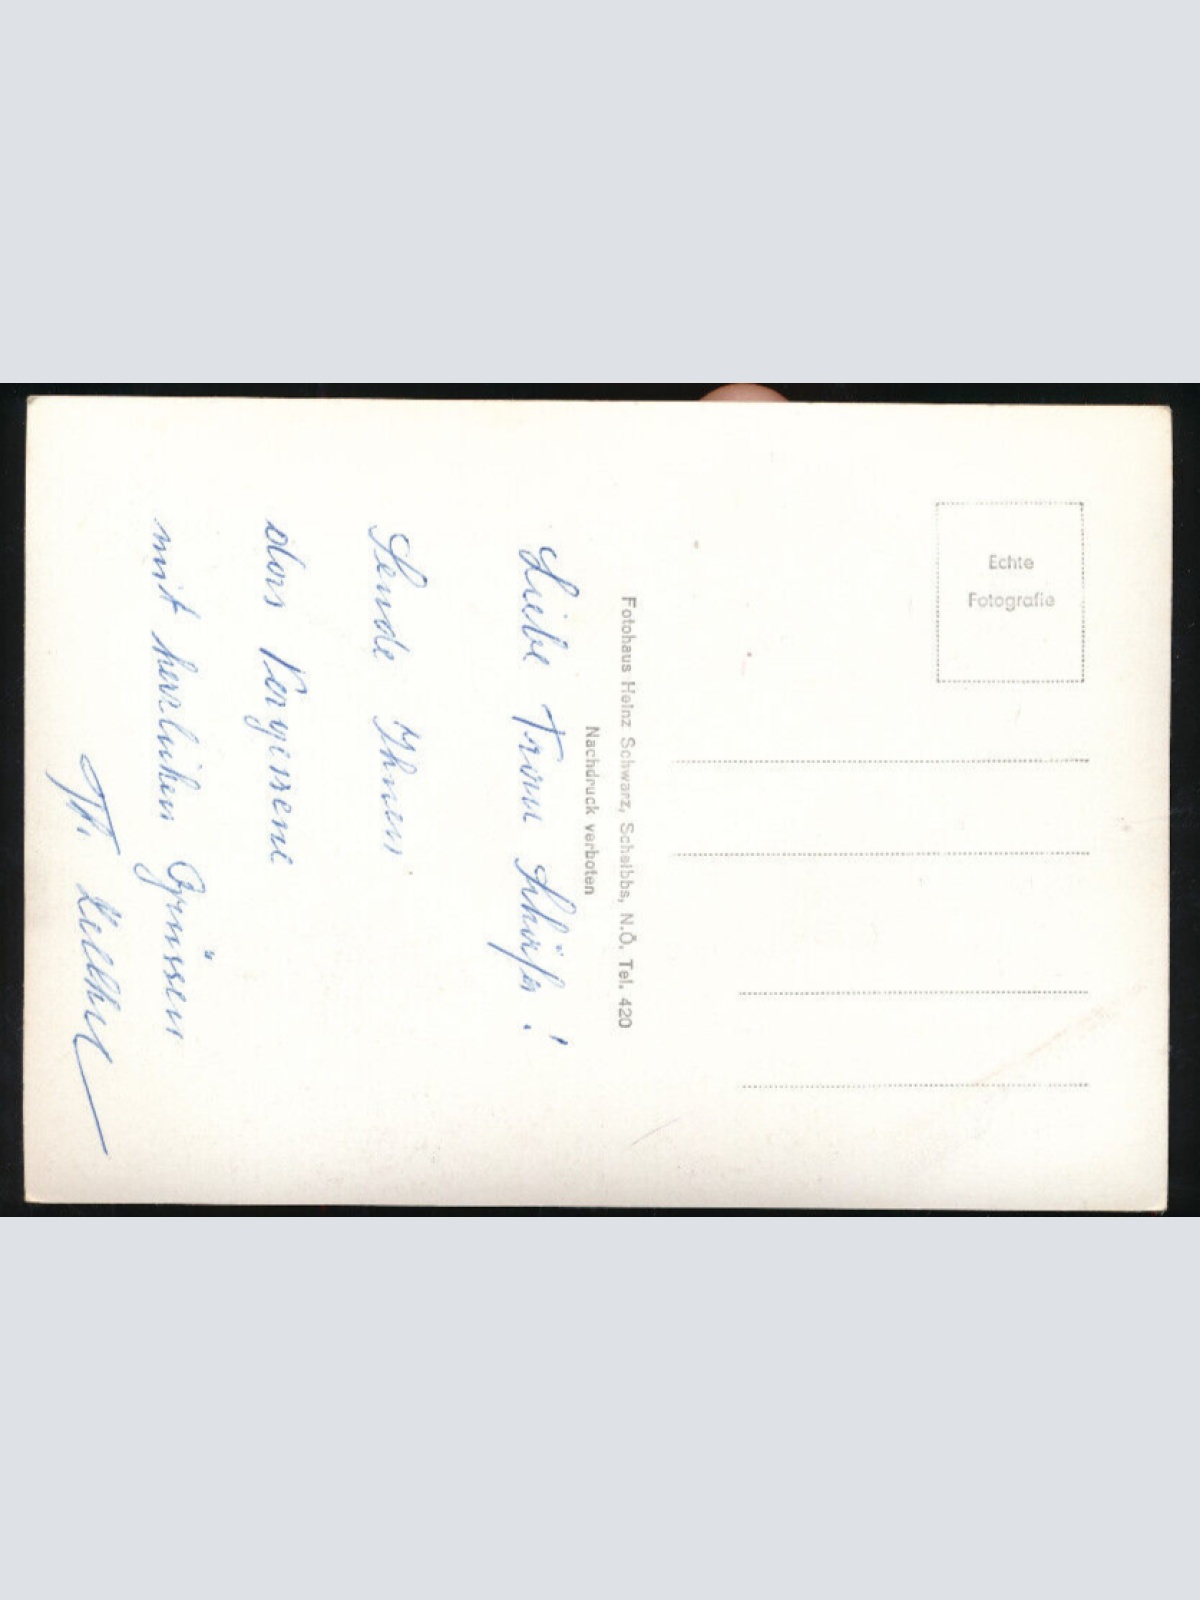 Liebe Frau Schäfer!
Sende Ihnen
das Vergissene
mit herzlichen Grüssen
Th.
Fotohaus Heinz Schwarz, Scheibbs, N.Ö. Tel. 420
Nachdruck verboten
Echte
Fotografie